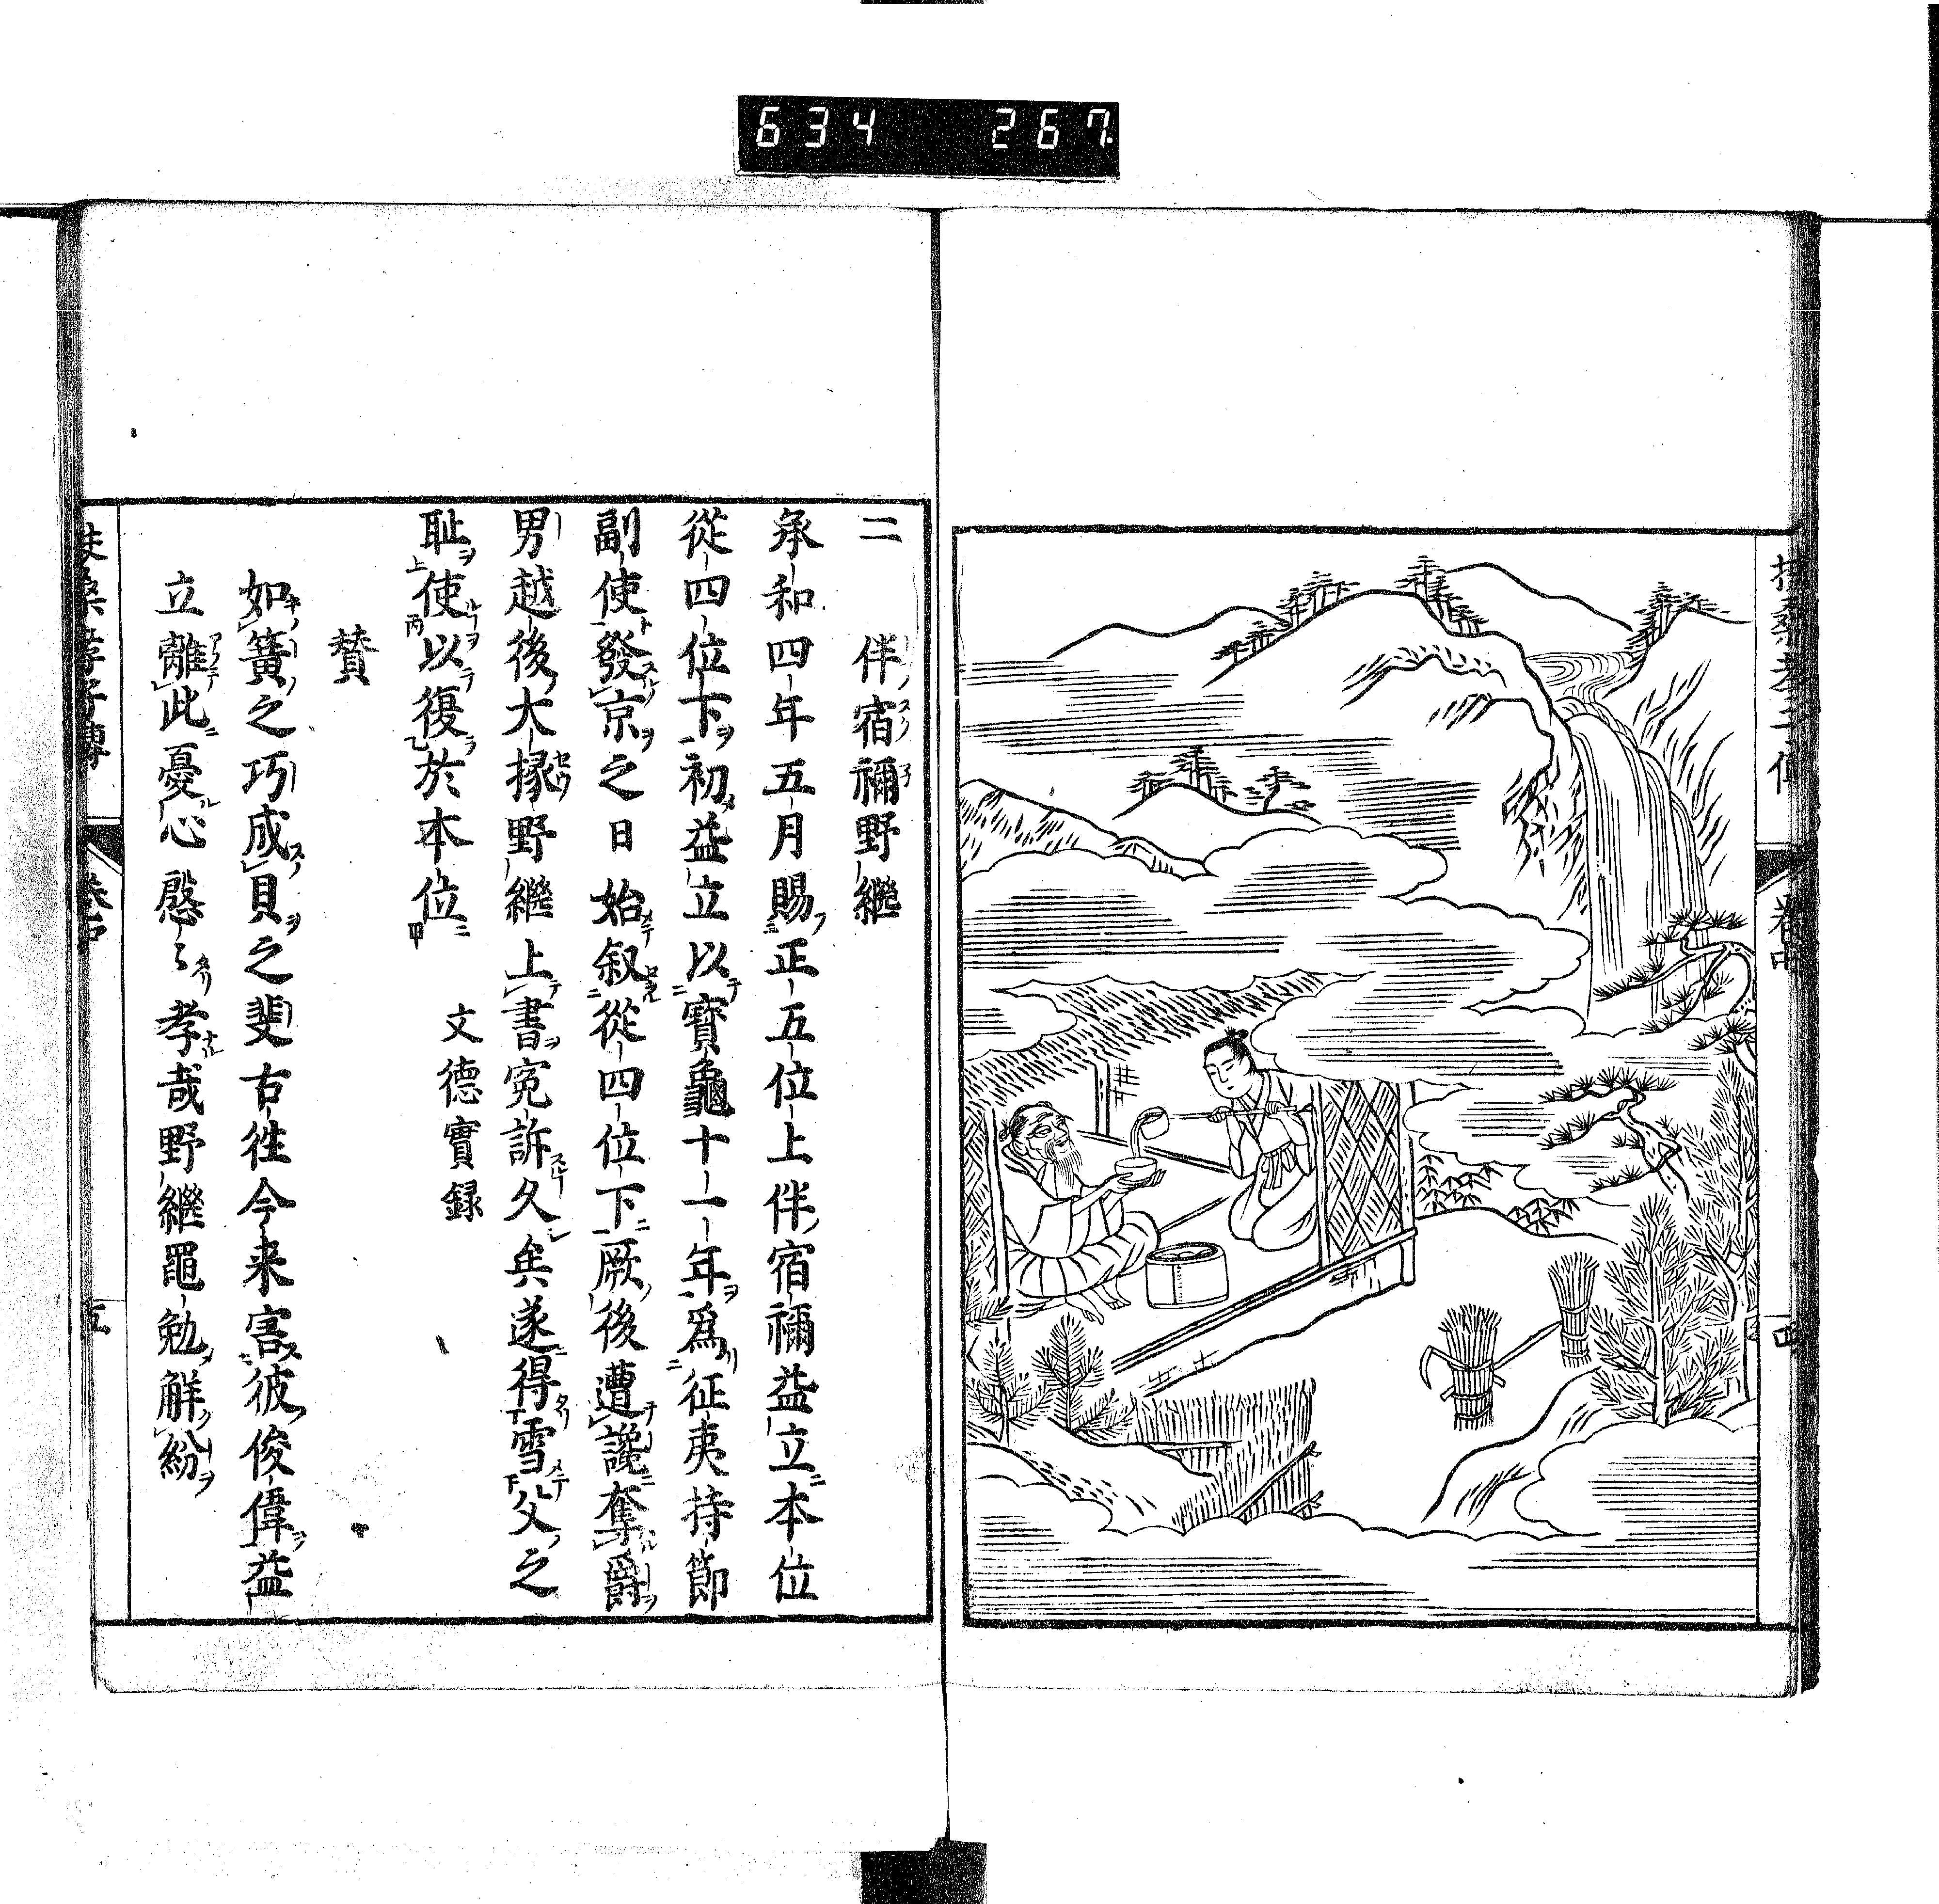 634 267
扶桑孝子傳
卷中
四
二 伴宿禰野繼
承和四年五月賜正五位上伴宿禰益立本位
從四位下初益立以寶龜十一年爲征夷持節
副使發京之日始叙從四位下厥後遭讒奪爵
男越後大掾野繼上書寃訴久矣遂得雪父之
耻使以復於本位
文德實録
賛
如簧之巧成貝之斐古徃今来害彼俊偉益
立離此憂心慇〻孝哉野繼黽勉解紛
扶桑孝子傳
卷中
五